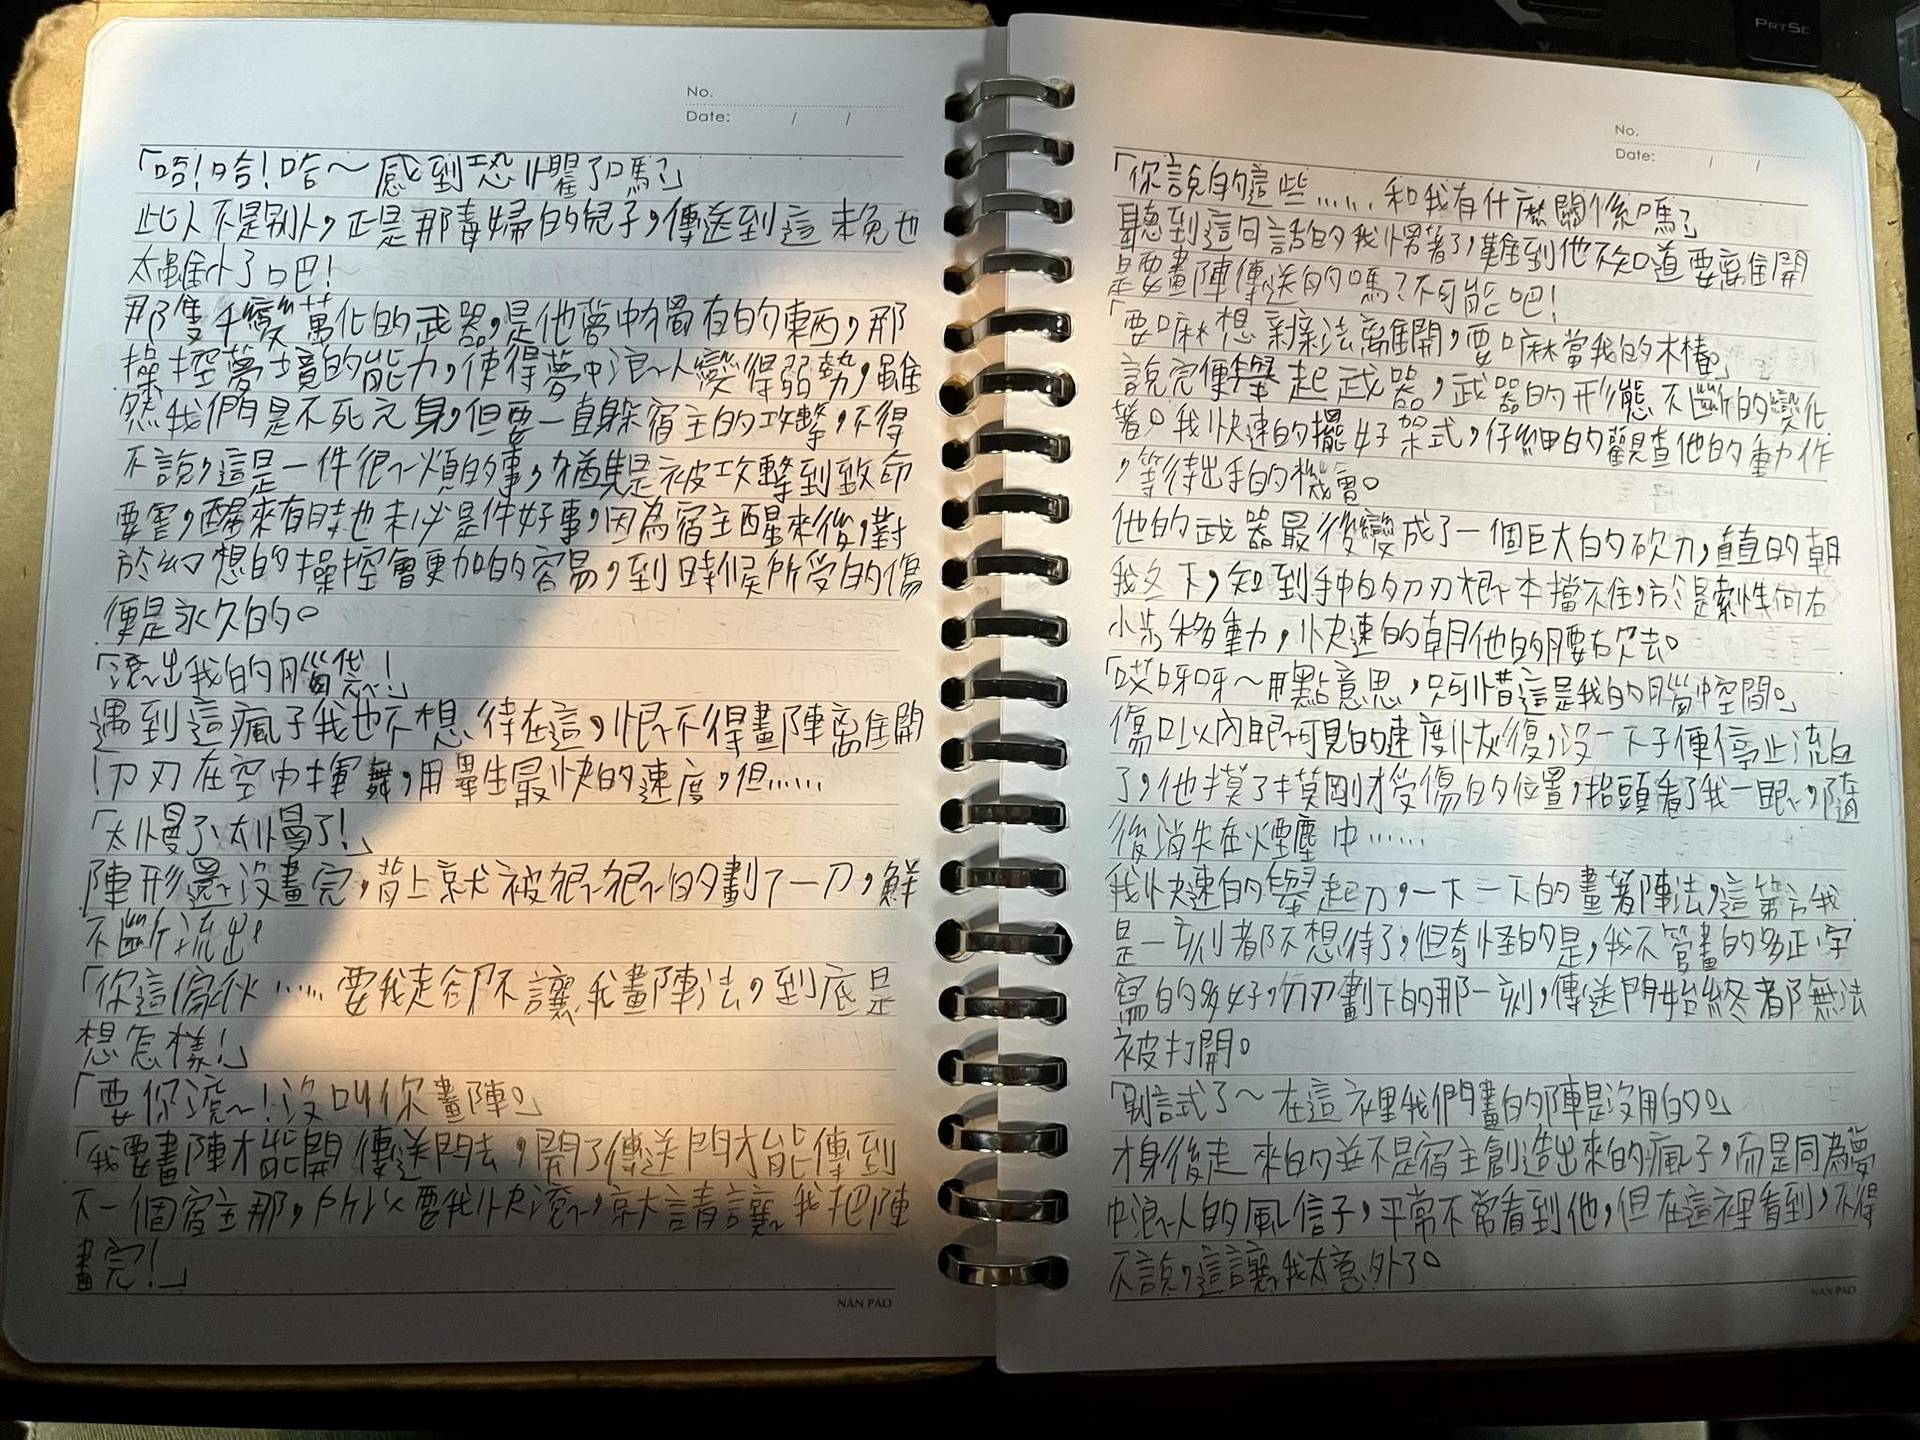 No.
Date: / /
「哈!哈!哈~感到恐懼了嗎?」
此人不是別人,正是那毒婦的兒子,傳送到這未免也
太雖小了吧!
那隻千變萬化的武器,是他夢中才擁有的東西,那
操控夢境的能力,使得夢中浪人變得弱勢,雖
然我們是不死之身,但要一直躲宿主的攻擊,不得
不說,這是一件很煩的事,尤其是被攻擊到致命
要害,醒來有時也未必是件好事,因為宿主醒來後,對
於幻想的操控會更加的容易,到時候所受的傷
便是永久的。
「滾出我的腦袋!」
遇到這瘋子我也不想待在這,恨不得畫陣離開
!刀刃在空中揮舞,用畢生最快的速度,但……
「太慢了、太慢了!」
陣形還沒畫完,背上就被狠狠的劃了一刀,鮮
不斷流出。
「你這傢伙……要我走卻不讓我畫陣法,到底是
想怎樣!」
「要你滾~!沒叫你畫陣。」
「我要畫陣才能開傳送門去,開了傳送門才能傳到
下一個宿主那,所以要我快滾,就請讓我把陣
畫完!」
NAN PAO
No.
Date: / /
「你說的這些……和我有什麼關係嗎?」
聽到這句話的我愣著了,難到他不知道要離開
是要畫陣傳送的嗎?不可能吧!
「要嘛想辦法離開,要嘛當我的木樁。」
說完便舉起武器,武器的形態不斷的變化
著。我快速的擺好架式,仔細的觀查他的動作
,等待出手的機會。
他的武器最後變成了一個巨大的砍刀,直直的朝
我砍下,知到手中的刀刃根本擋不住,於是索性向右
小步移動,快速的朝他的腰砍去。
「哎呀呀~有點意思,只可惜這是我的腦中空間。」
傷口以肉眼可見的速度恢復,沒一下子便停止流血
了,他摸了摸剛才受傷的位置,抬頭看了我一眼,隨
後消失在煙塵中……
我快速的舉起刀,一下一下的畫著陣法,這第方我
是一刻都不想待了,但奇怪的是,我不管畫的多正、字
寫的多好,刀刃劃下的那一刻,傳送門始終都無法
被打開。
「別試了~在這裡我們畫的陣是沒用的。」
才身後走來的並不是宿主創造出來的瘋子,而是同為夢
中浪人的風信子,平常不常看到他,但在這裡看到,不得
不說,這讓我太意外了。
NAN PAO
PRTSC